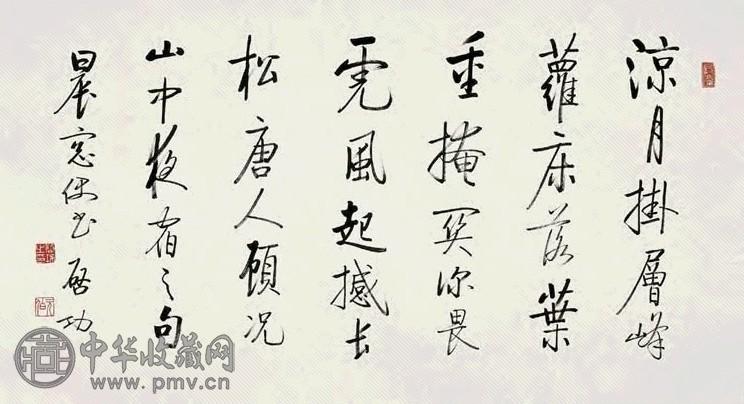 涼月掛層峰
蘿床落葉
重掩関深畏
虎風起撼长
松唐人顾况
山中夜宿之句
晨窓偶书 啟功
中华收藏网
www.pmv.cn